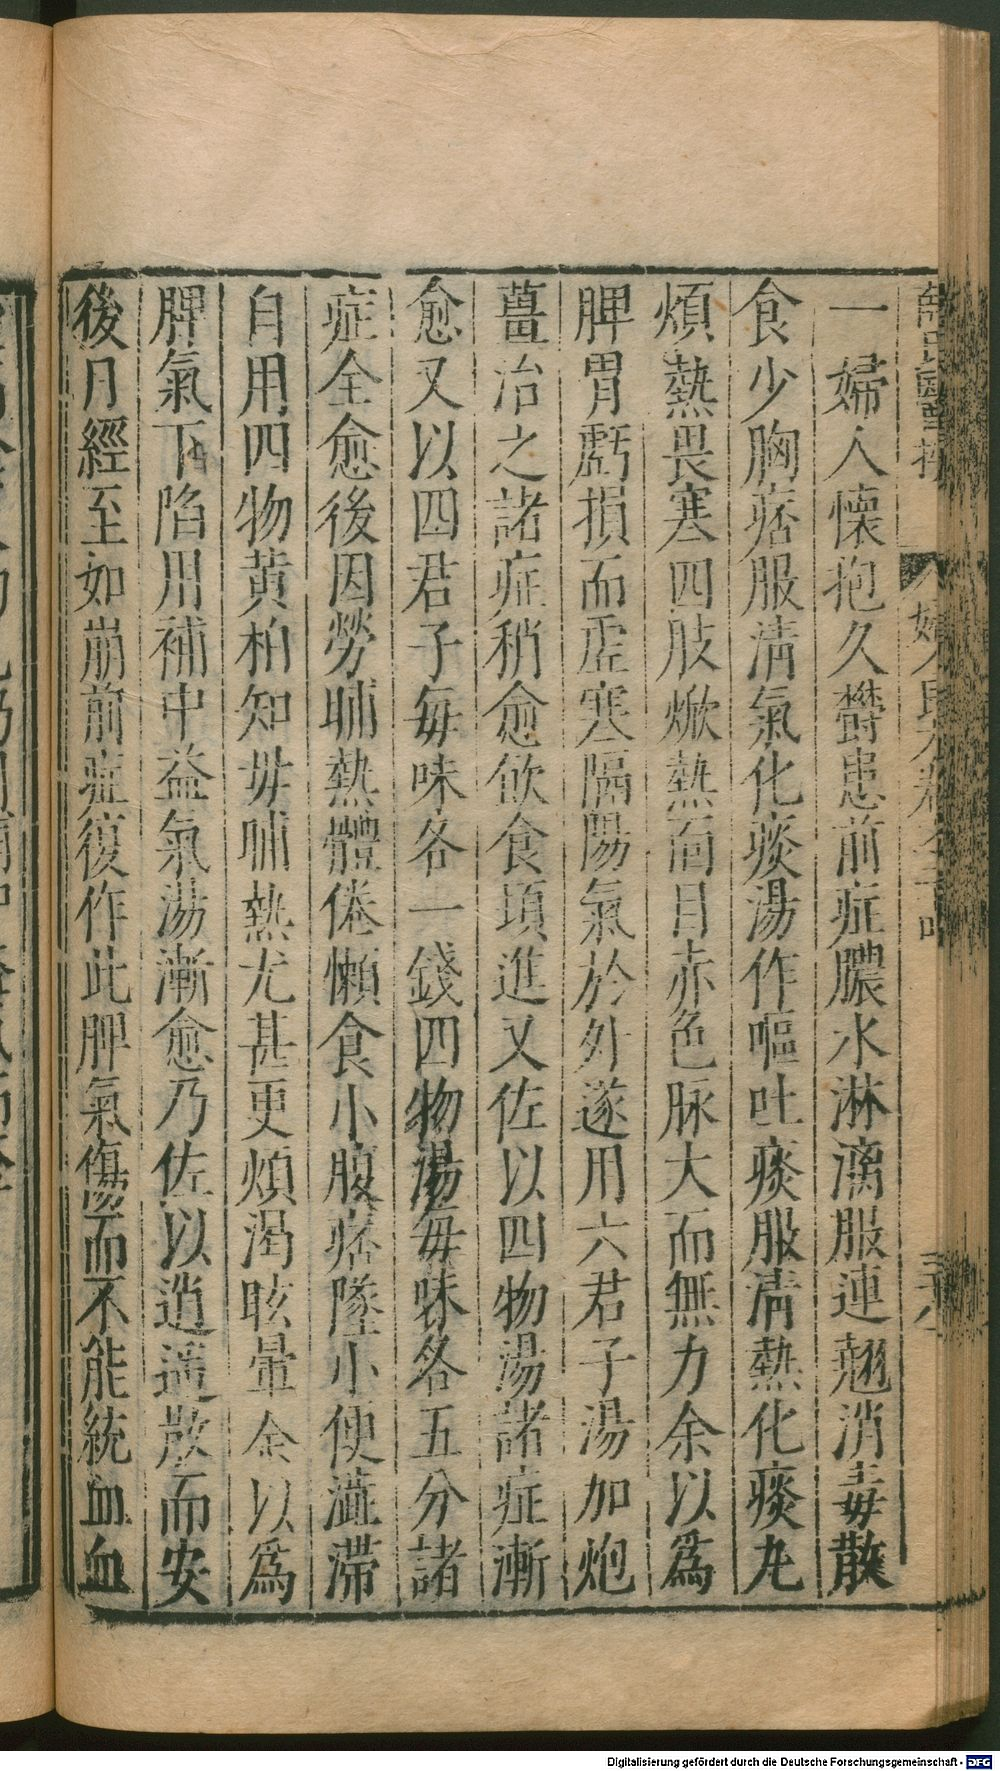 一婦人懷抱久鬱患前症膿水淋漓服連翹消毒散
食少胸痞服淸氣化痰湯作嘔吐痰服淸熱化痰丸
煩熱畏寒四肢焮熱面目赤色脉大而無力余以爲
脾胃虧損而虛寒隔陽氣於外遂用六君子湯加炮
薑治之諸症稍愈飲食頃進又佐以四物湯諸症漸
愈又以四君子每味各一錢四物湯每味各五分諸
症全愈後因勞晡熱體倦懶食小腹痞墜小便澁滯
自用四物黃柏知母晡熱尤甚更煩渴眩暈余以爲
脾氣下陷用補中益氣湯漸愈乃佐以逍遥散而安
後月經至如崩前症復作此脾氣傷而不能統血血
Digitalisierung gefördert durch die Deutsche Forschungsgemeinschaft - DFG